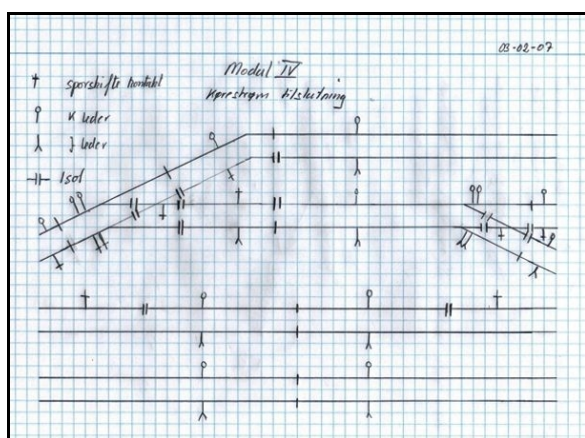 03-02-07
Modul IV
Køresteøm tilslutning
sporskifte kontakt
K leder
J leder
Isol